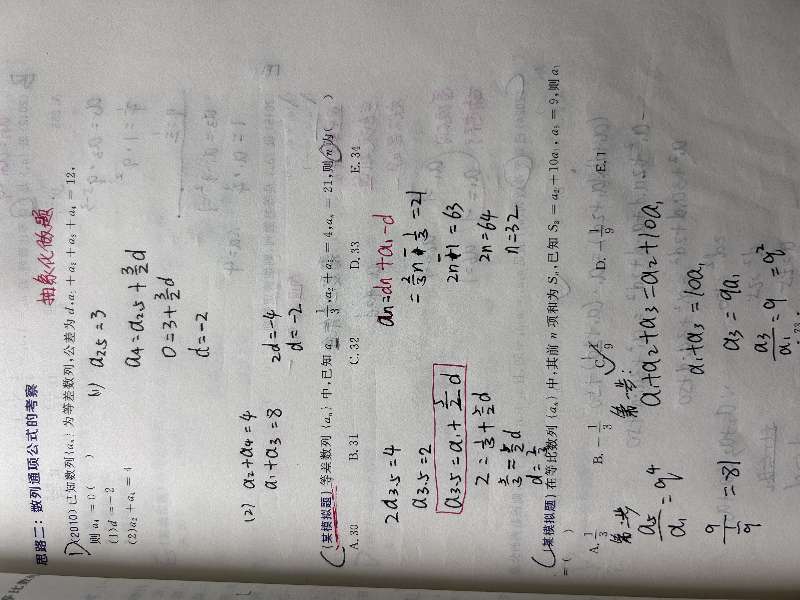 思路二：数列通项公式的考察
抽象化做题
1)(2010)已知数列{aₙ}为等差数列,公差为d,a₁+a₂+a₃+a₄=12,
则a₄=0(　　)
(1)d=-2
(2)a₂+a₄=4
(1) a₂.₅=3
a₄=a₂.₅+3/2d
0=3+3/2d
d=-2
(2) a₂+a₄=4
a₁+a₃=8
2d=-4
d=-2
(某模拟题)等差数列{aₙ}中,已知a₁=1/3,a₂+a₅=4,aₙ=21,则n为(　　)
A.30 B.31 C.32 D.33 E.34
2a₃.₅=4
a₃.₅=2
a₃.₅=a₁+5/2d
2=1/3+5/2d
5/3=5/2d
d=2/3
aₙ=dn+a₁-d
=2/3n-1/3=21
2n-1=63
2n=64
n=32
(某模拟题)在等比数列{aₙ}中,其前n项和为Sₙ,已知S₃=a₂+10a₁,a₅=9,则a₁
=(　　)
A.1/3 B.-1/3 C.1/9 D.-1/9 E.1
第一步:
a₁+a₂+a₃=a₂+10a₁
a₁+a₃=10a₁
a₃=9a₁
a₃/a₁=9=q²
第二步
a₅/a₁=q⁴
9/(1/9)=81